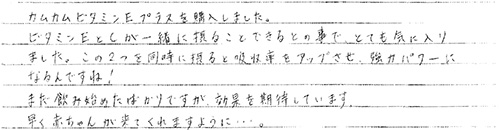 カムカムビタミンEプラスを購入しました。
ビタミンEとCが一緒に摂ることできるとの事で、とても気に入り
ました。この2つを同時に摂ると吸収率をアップさせ、強力パワーに
なるんですね!
まだ飲み始めたばかりですが、効果を期待しています。
早く赤ちゃんが来てくれますように…。